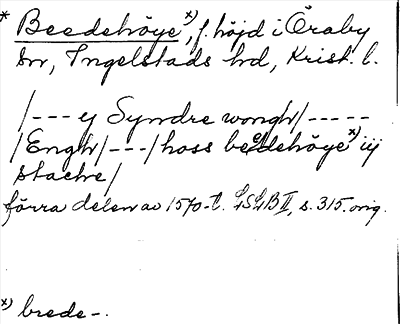 * Beedehöye x), f. höjd i Öraby
sn, Ingelstads hd, Krist. l.
/--- ej Syndre wongh/-----
/Engh/---/hoss beedehöye x) iij
stache/
förra delen av 1570-t. LSLB II, s. 315. orig.
x) brede-.